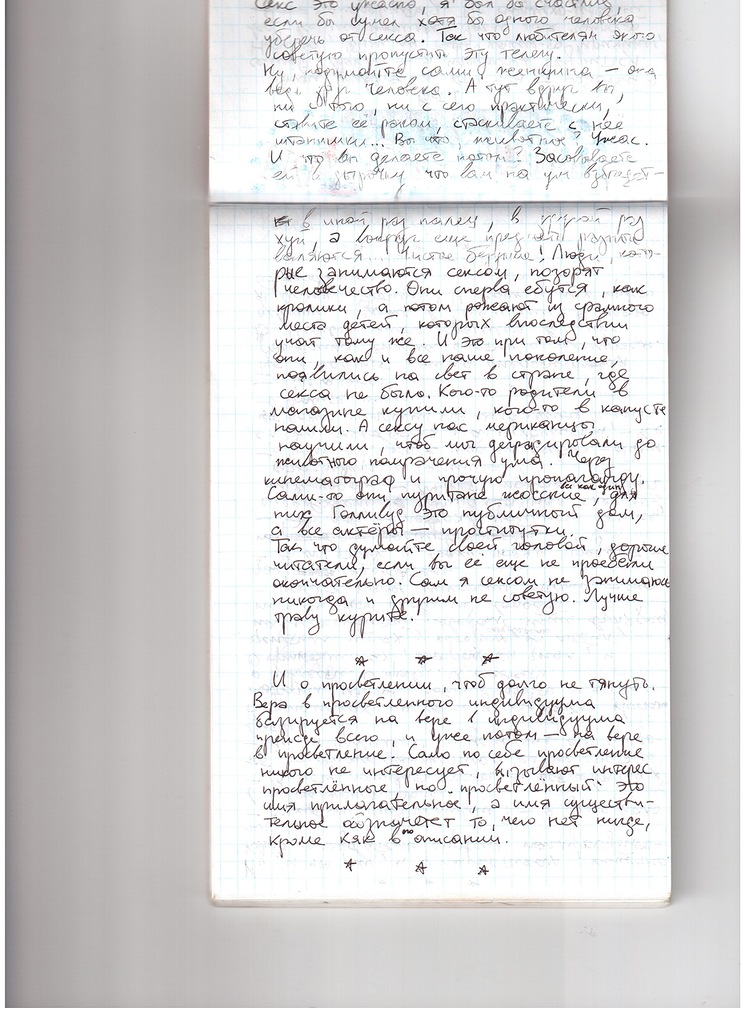 Секс это ужасно, я был бы счастлив,
если бы сумел хотя бы одного человека
уберечь от секса. Так что любителям этого
советую пропустить эту телегу.
Ну, подумайте сами, женщина — она
ведь друг человека. А тут вдруг вы,
ни с того, ни с сего практически,
ставите её раком, стаскиваете с неё
штанишки... Вы что, животное? Ужас.
И что вы делаете потом? Засовываете
ей в дырочку что вам на ум взбредёт —
в иной раз палец, в другой раз
хуй, а вокруг ещё предметы разные
валяются... Чистое безумие! Люди, кото-
рые занимаются сексом, позорят
человечество. Они сперва ебутся, как
кролики, а потом рожают из срамного
места детей, которых впоследствии
учат тому же. И это при том, что
они, как и все наше поколение,
появились на свет в стране, где
секса не было. Кого-то родители в
магазине купили, кого-то в капусте
нашли. А сексу нас мериканцы
научили, чтоб мы деградировали до
животного помрачения ума. Через
кинематограф и прочую пропаганду.
Сами-то они пуритане жосские все как один, для
них Голливуд это публичный дом,
а все актёры — проститутки.
Так что думайте своей головой, дорогие
читатели, если вы её еще не проебели
окончательно. Сам я сексом не занимаюсь
никогда и другим не советую. Лучше
траву курите.
И о просветлении, чтоб долго не тянуть.
Вера в просветленного индивидуума
базируется на вере в индивидуума
прежде всего, и уже потом — на вере
в просветление. Само по себе просветление
никого не интересует, вызывают интерес
просветлённые. Но "просветлённый" это
имя прилагательное, а имя существи-
тельное обозначает то, чего нет нигде,
кроме как в его описании.